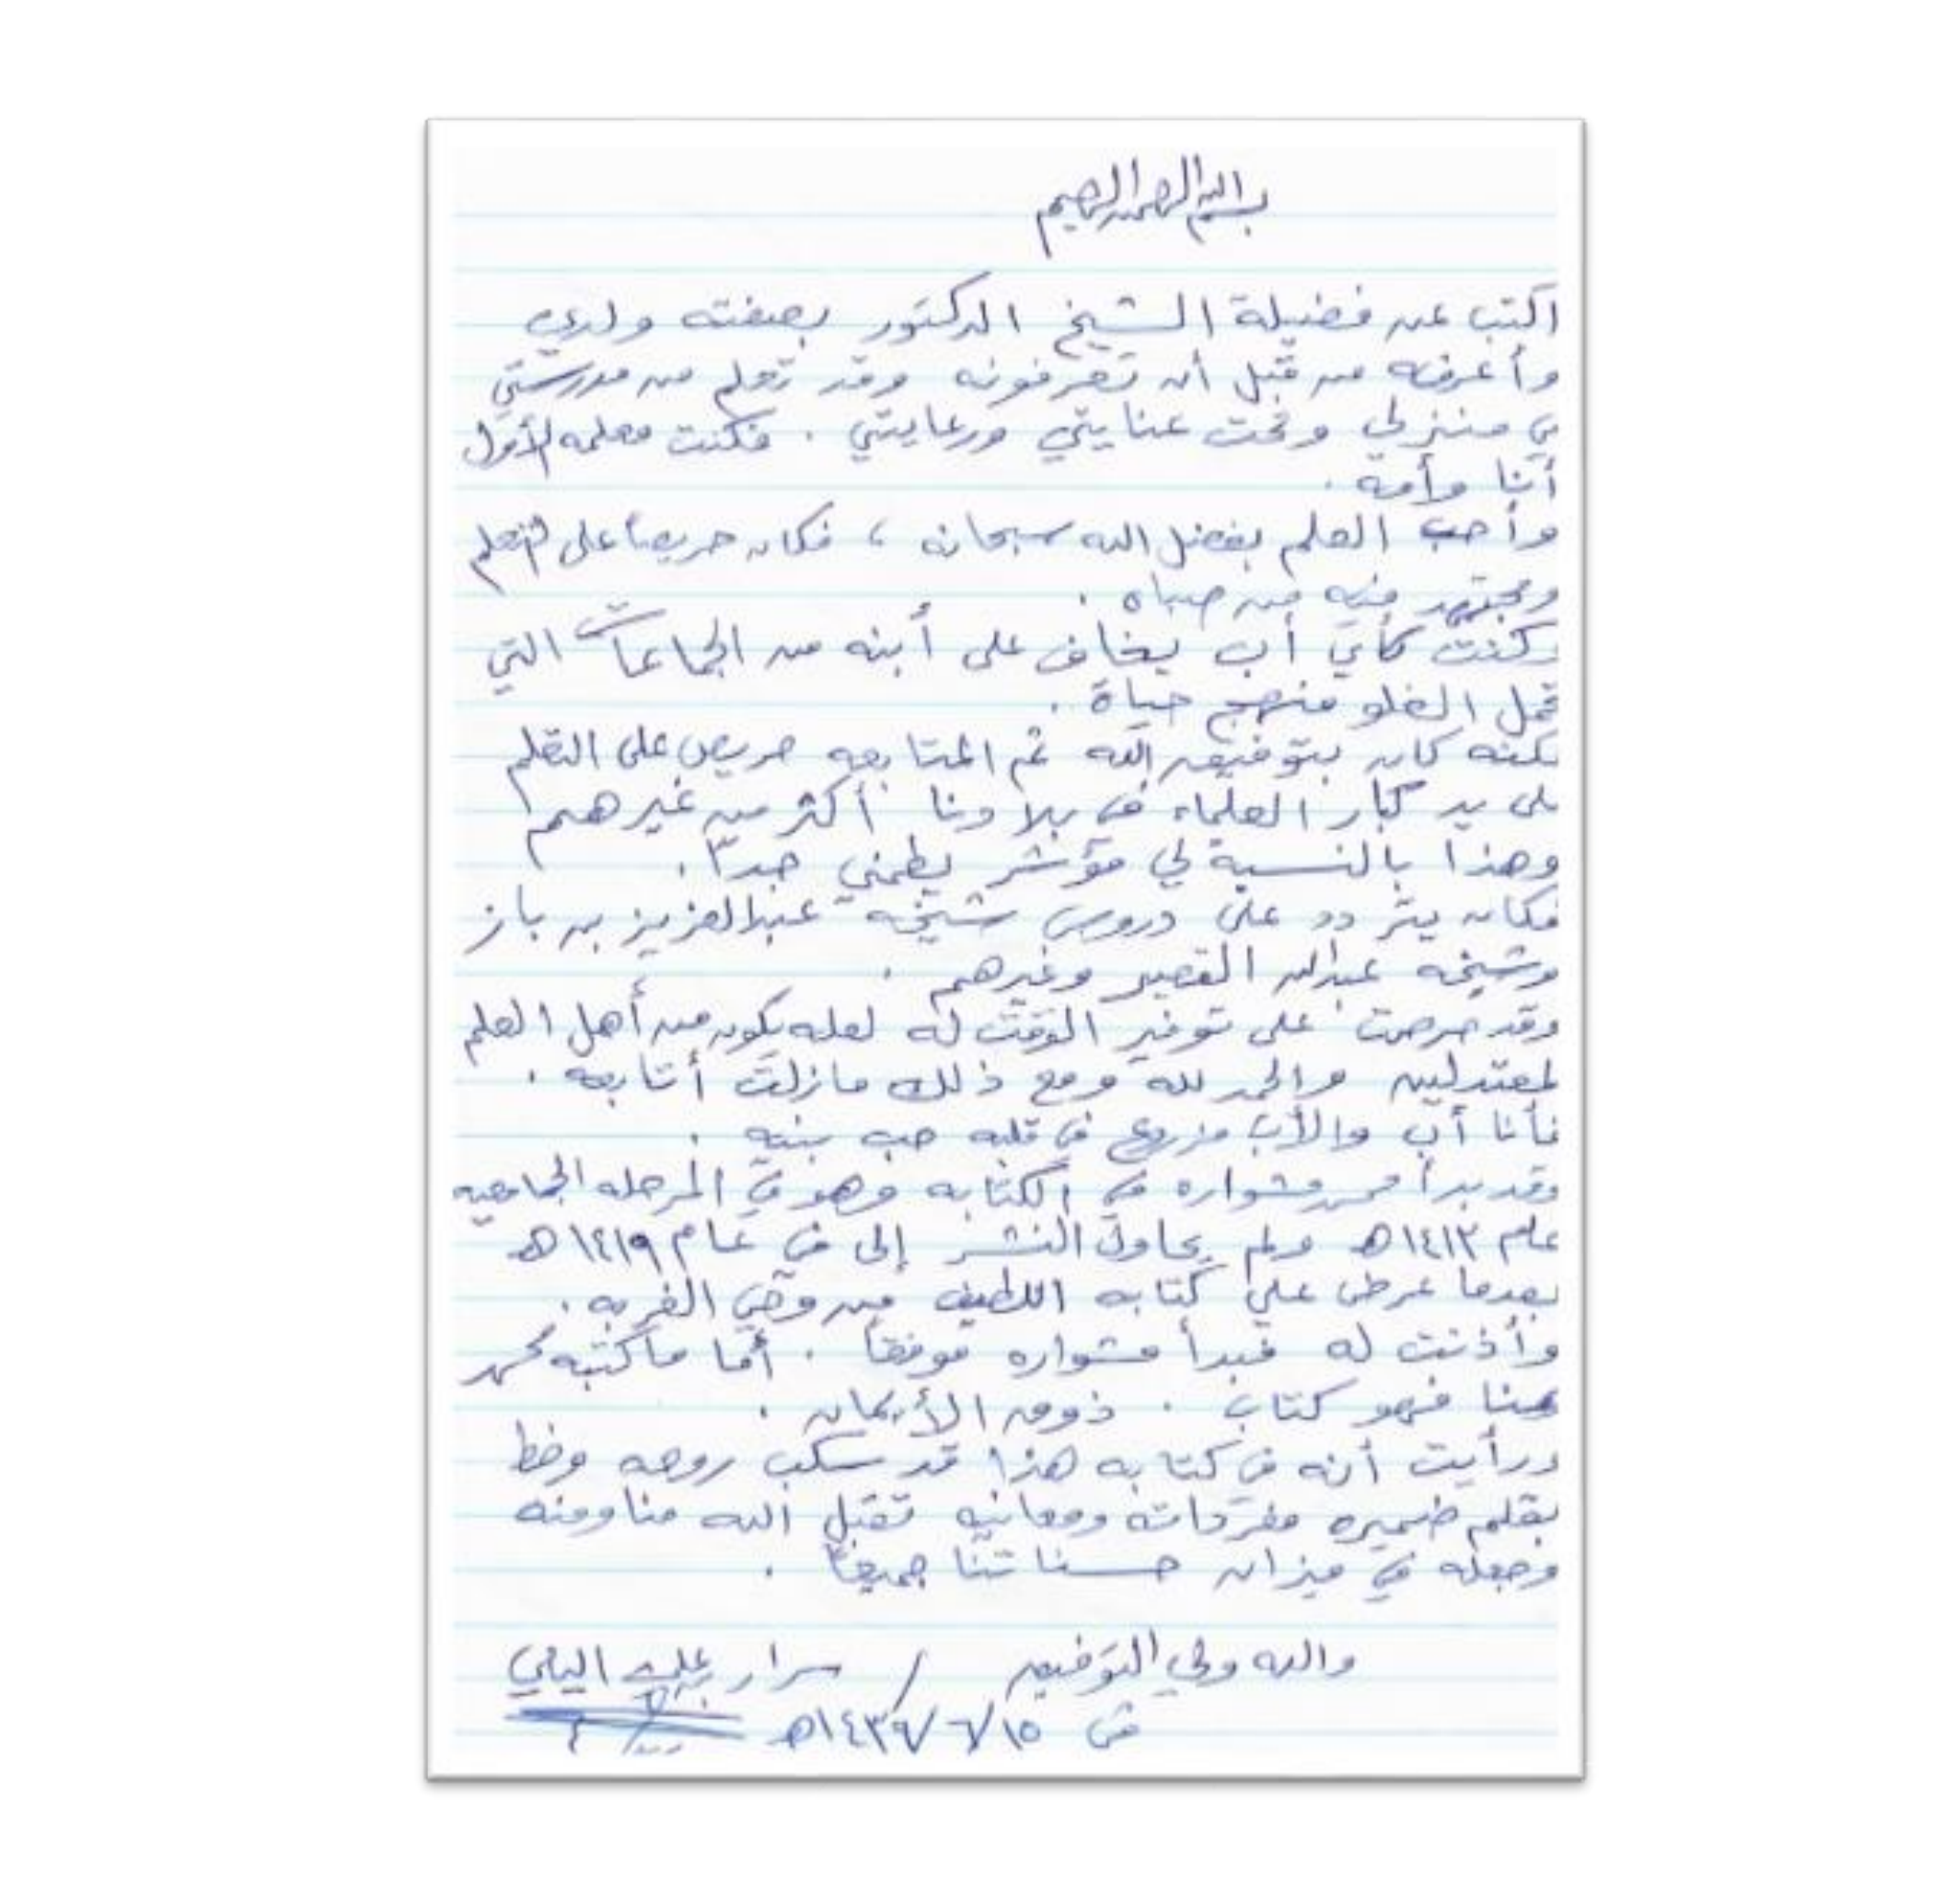 بسم الله الرحمن الرحيم
اكتب عن فضيلة الشيخ الدكتور بصفته ولدي
وأعرفه من قبل أن تعرفونه وقد تعلم من مدرستي
في منزلي وتحت عنايتي ورعايتي . فكنت معلمه الأول
أنا وأمه .
وأحب العلم بفضل الله سبحانه ، فكان حريصاً على التعلم
ومجتهد فيه من صباه .
وكنت كأي أب يخاف على أبنه من الجماعات التي
تحمل الغلو منهج حياة .
لكنه كان بتوفيق الله ثم المتابعه حريص على التعلم
على يد كبار العلماء في بلادنا أكثر من غيرهم
وهذا بالنسبة لي مؤشر يطمني جداً .
فكان يتردد على دروس شيخه عبدالعزيز بن باز
وشيخه عبدالله القصير وغيرهم .
وقد حرصت على توفير الوقت له لعله يكون من أهل العلم
المعتدلين والحمد لله ومع ذلك مازلت أتابعه .
فأنا أب والأب مزروع في قلبه حب بنيه .
وقد بدأ مشواره في الكتابه وهو في المرحله الجامعيه
عام ١٤١٣هـ ولم يحاول النشر إلى في عام ١٤١٩هـ
بعدما عرض علي كتابه اللطيف من وحي الغربه .
وأذنت له فبدأ مشواره موفقاً . أما ماكتبه محمد
هنا فهو كتاب . ذوق الأيمان .
ورأيت أنه في كتابه هذا قد سكب روحه وخط
بقلم ضميره مفرداته ومعانيه تقبل الله منا ومنه
وجعله في ميزان حسناتنا جميعاً .
والله ولي التوفيق / سرار علي اليامي
في ١٤٣٩/٦/١٥هـ